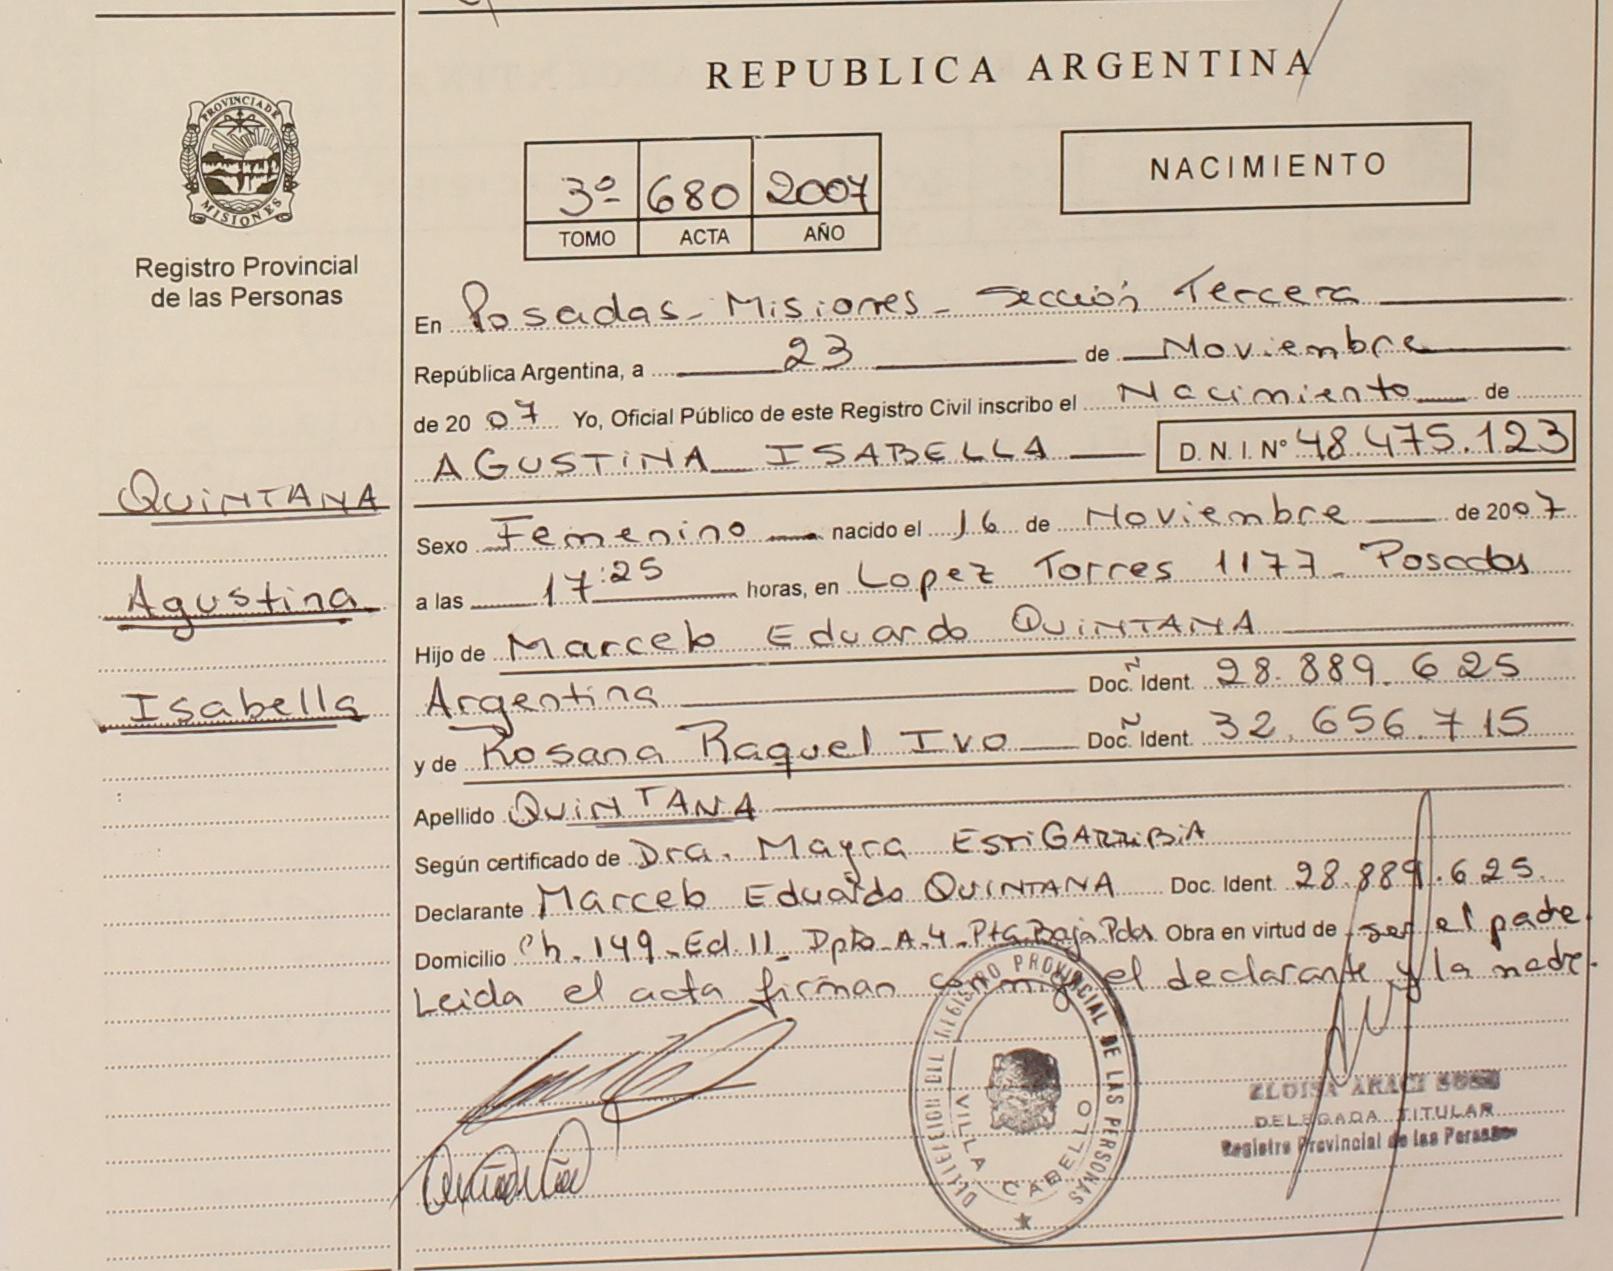 REPUBLICA ARGENTINA
PROVINCIA DE
MISIONES
Registro Provincial
de las Personas
3º 680 2007
TOMO ACTA AÑO
NACIMIENTO
En Posadas - Misiones - Sección Tercera
República Argentina, a 23 de Noviembre
de 2007 Yo, Oficial Público de este Registro Civil inscribo el Nacimiento de
AGUSTINA ISABELLA D.N.I. Nº 48.475.123
QUINTANA
Agustina
Isabella
Sexo Femenino nacido el 16 de Noviembre de 2007
a las 17:25 horas, en Lopez Torres 1177 - Posadas
Hijo de Marcelo Eduardo QUINTANA
Argentina Doc. Ident. 28.889.625
y de Rosana Raquel Ivo Doc. Ident. 32.656.715
Apellido QUINTANA
Según certificado de Dra. Mayra EstiGARRiBiA
Declarante Marcelo Eduardo QUINTANA Doc. Ident. 28.889.625.
Domicilio Ch. 149 - Ed. 11 - Dpto A-4 - Pta Baja Pdas Obra en virtud de ser el padre.
Leida el acta firman conmigo el declarante y la madre.
REGISTRO PROVINCIAL DE LAS PERSONAS
VILLA CABELLO
ELOISA ARACI
DELEGADA TITULAR
Registro Provincial de las Personas